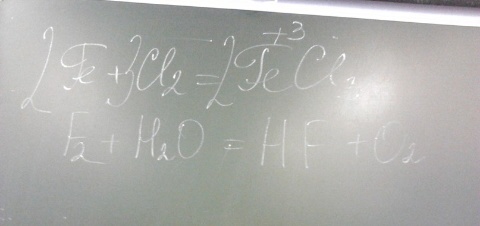 2Fe+3Cl2=2Fe+3Cl3
F2+H2O=HF+O2